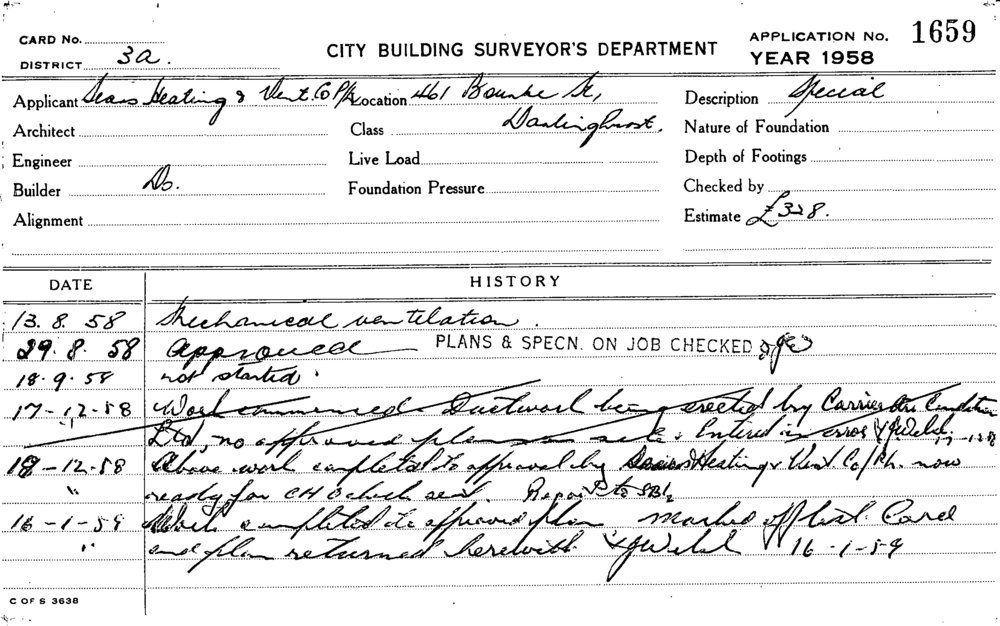 CARD No.
DISTRICT 3a.
CITY BUILDING SURVEYOR'S DEPARTMENT
APPLICATION No. 1659
YEAR 1958
Applicant Sears Heating & Vent. Co P/L Location 461 Bourke St, Description Special
Architect Class Darlinghurst. Nature of Foundation
Engineer Live Load Depth of Footings
Builder Do. Foundation Pressure Checked by
Alignment Estimate £328.
DATE HISTORY
13.8.58 Mechanical ventilation.
29.8.58 Approved PLANS & SPECN. ON JOB CHECKED
18-9-58 not started.
17-12-58 Work commenced Ductwork being erected by Carrier Air Condition
" Ltd, no approved plans on site. Entered in error 17-12-58
18-12-58 Above work completed to approval by Heating & Vent Co/ now
" ready for check sent. Report to
16-1-59 Work completed to approved plan marked off list. Card
" and plan returned herewith 16-1-59
C OF S 3638